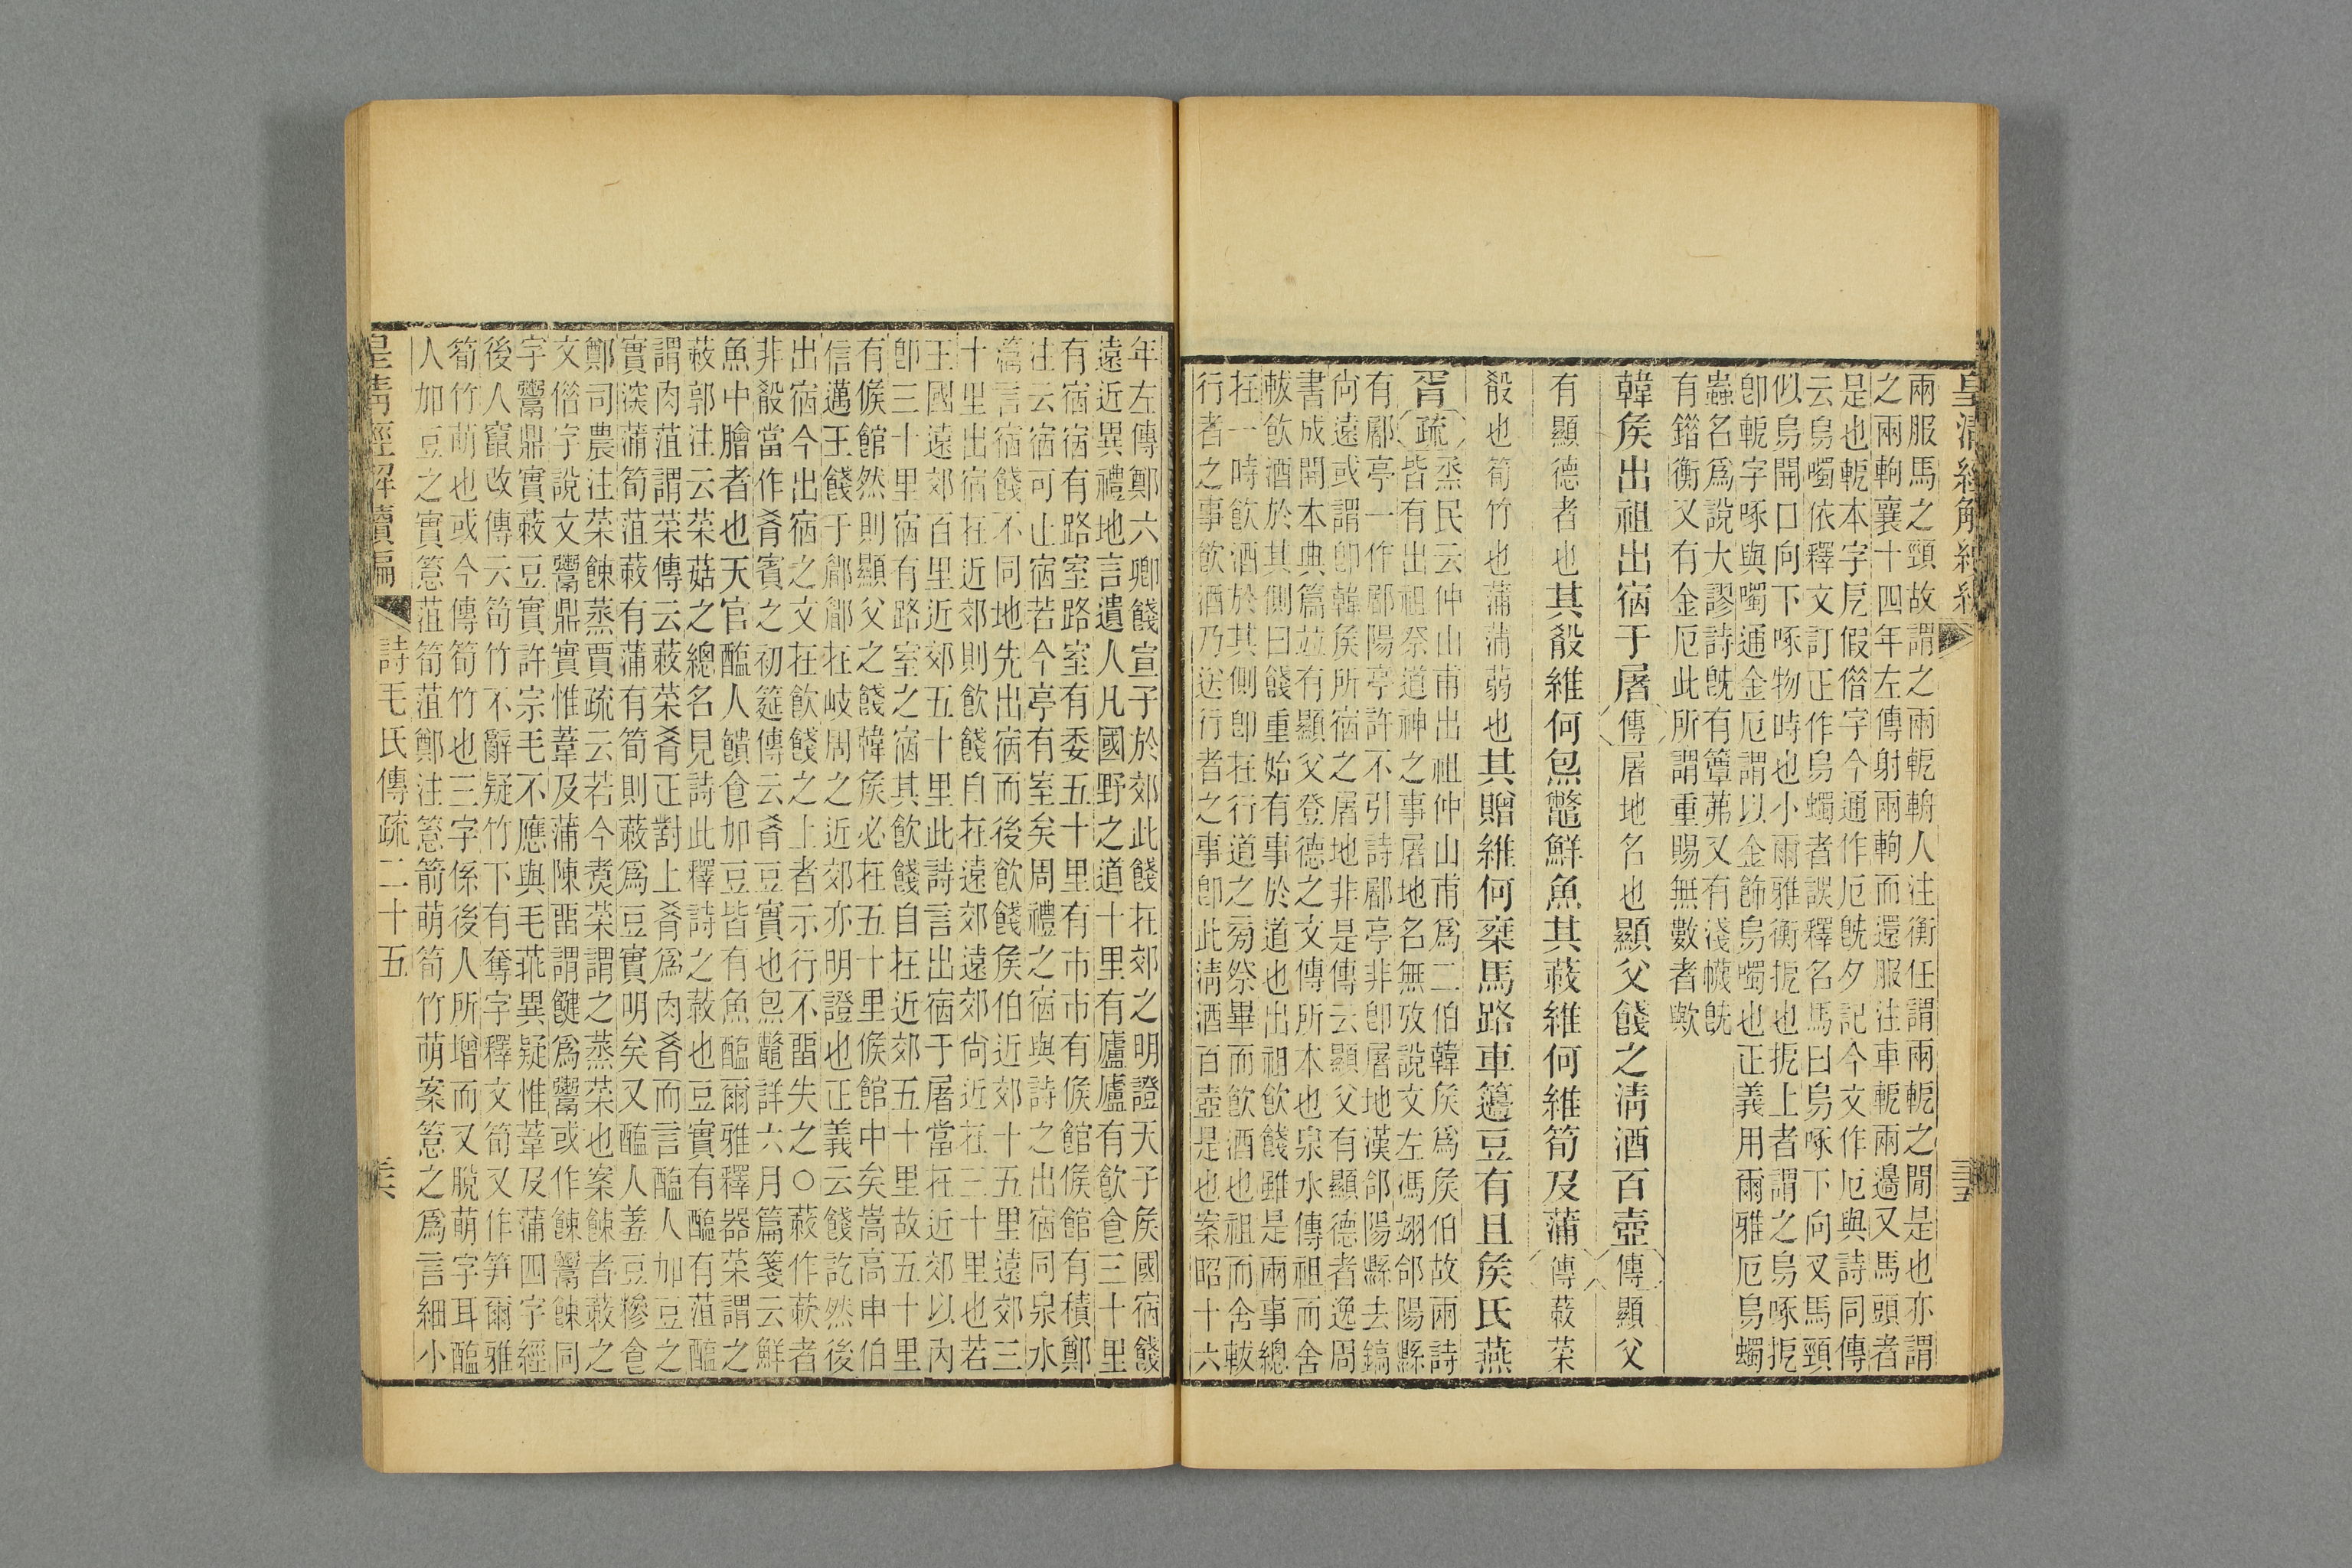 皇清經解續編
兩服馬之頸故謂之兩軛軥人注衡任謂兩軛之閒是也亦謂
之兩軥襄十四年左傳射兩軥而還服注車軛兩邊叉馬頭者
是也軛本字厄假借字今通作厄旣夕記今文作厄與詩同傳
云烏噣依釋文訂正作烏蠋者誤釋名馬曰烏啄下向叉馬頸
似烏開口向下啄物時也小爾雅衡扼也扼上者謂之烏啄扼
卽軛字啄與噣通金厄謂以金飾烏蠋也正義用爾雅厄烏蠋
蟲名爲說大謬詩旣有簟茀又有淺幭旣
有鍇衡又有金厄此所謂重賜無數者歟
韓侯出祖出宿于屠傳屠地名也顯父餞之淸酒百壺傳顯父
有顯德者也其殽維何炰鼈鮮魚其蔌維何維筍及蒲傳蔌菜
殽也筍竹也蒲蒲蒻也其贈維何乘馬路車籩豆有且侯氏燕
胥疏烝民云仲山甫出祖仲山甫爲二伯韓侯爲侯伯故兩詩
皆有出祖祭道神之事屠地名無攷說文左馮翊郃陽縣
有鄌亭一作鄌陽亭許不引詩鄌亭非卽屠地漢郃陽縣去鎬
尙遠或謂卽韓侯所宿之屠地非是傳云顯父有顯德者逸周
書成開本典篇竝有顯父登德之文傳所本也泉水傳祖而舍
軷飮酒於其側曰餞重始有事於道也出祖飮餞雖是兩事總
在一時飮酒於其側卽在行道之旁祭畢而飮酒也祖而舍軷
行者之事飮酒乃送行者之事卽此淸酒百壺是也案昭十六
三十五
年左傳鄭六卿餞宣子於郊此餞在郊之明證天子侯國宿餞
遠近異禮地言遺人凡國野之道十里有廬廬有飮食三十里
有宿宿有路室路室有委五十里有市市有候館候館有積鄭
注云宿可止宿若今亭有室矣周禮之宿與詩之出宿同泉水
箋言宿餞不同地先出宿而後飮餞侯伯近郊十五里遠郊三
十里出宿在近郊則飮餞自在遠郊遠郊尙近在三十里也若
王國遠郊百里近郊五十里此詩言出宿于屠當在近郊以內
卽三十里宿有路室之宿其飮餞自在近郊五十里故五十里
有候館然則顯父之餞韓侯必在五十里候館中矣嵩高申伯
信邁王餞于郿郿在岐周之近郊亦明證也正義云餞訖然後
出宿今出宿之文在飮餞之上者示行不畱失之○蔌作蔌者
非殽當作肴賓之初筵傳云肴豆實也炰鼈詳六月篇箋云鮮
魚中膾者也天官醢人饋食加豆皆有魚醢爾雅釋器菜謂之
蔌郭注云菜菇之總名見詩此釋詩之蔌也豆實有醢有菹醢
謂肉菹謂菜傳云蔌菜肴正對上肴爲肉肴而言醢人加豆之
實深蒲筍菹蔌有蒲有筍則蔌爲豆實明矣又醢人羞豆糝食
鄭司農注菜餗蒸賈疏云若今煑菜謂之蒸菜也案餗者蔌之
文借字說文鬻鼎實惟葦及蒲陳畱謂鍵爲鬻或作餗鬻餗同
字鬻鼎實蔌豆實許宗毛不應與毛乖異疑惟葦及蒲四字經
後人竄改傳云筍竹不辭疑竹下有奪字釋文筍又作笋爾雅
筍竹萌也或今傳筍竹也三字係後人所增而又脫萌字耳醢
人加豆之實箈菹筍菹鄭注箈箭萌筍竹萌案箈之爲言細小
皇淸經解續編
詩毛氏傳疏二十五
三十六